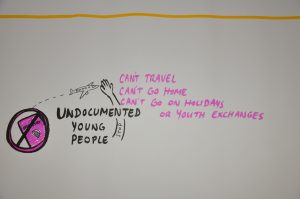 CAN'T TRAVEL
CAN'T GO HOME
CAN'T GO ON HOLIDAYS
OR YOUTH EXCHANGES
UNDOCUMENTED
YOUNG
PEOPLE